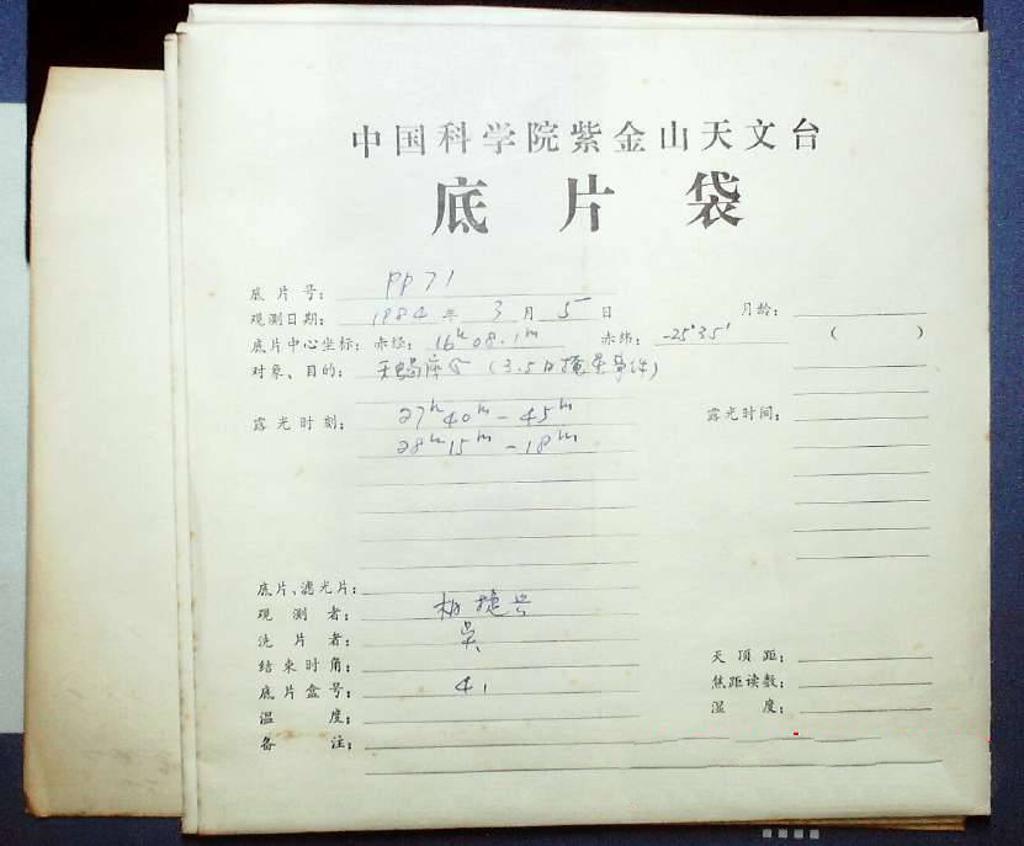 中国科学院紫金山天文台
底片袋
底片号： PP71
观测日期： 1984年 3月 5日 月龄：
底片中心坐标：赤经： 16h08.1m 赤纬： -25°35′ ( )
对象、目的： 天蝎座 (3.5日掩星事件)
露光时刻： 27h40m-45m 露光时间：
28h15m-18m
底片、滤光片：
观测者： 捷兴
洗片者： 吴
结束时角： 天顶距：
底片盒号： 4 焦距读数：
温度： 湿度：
备注：